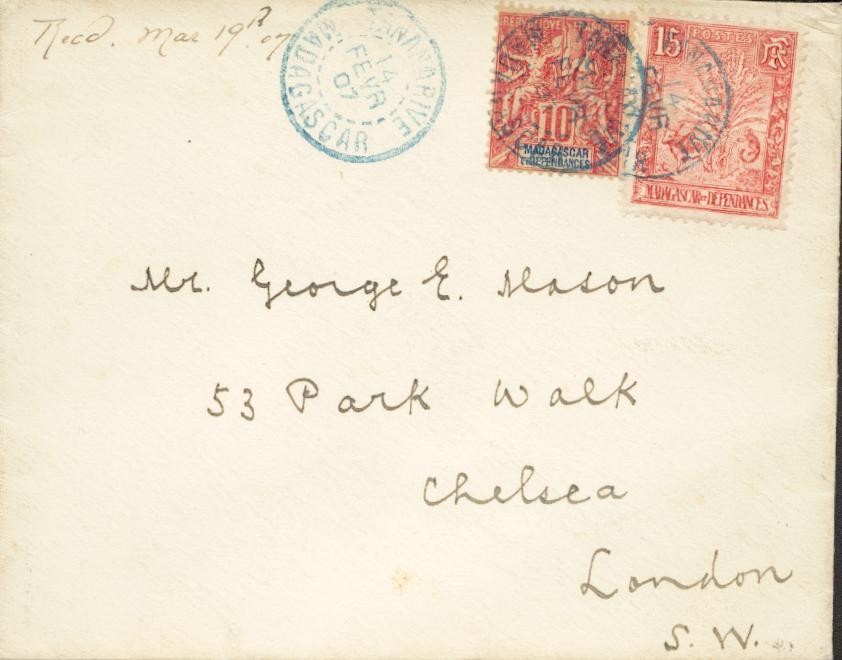 Recd. Mar 19th 07
TANANARIVE
14
FEVR
07
MADAGASCAR
10
MADAGASCAR
ET DEPENDANCES
15
POSTES
RF
MADAGASCAR ET DÉPENDANCES
Mr. George E. Mason
53 Park Walk
Chelsea
London
S.W.